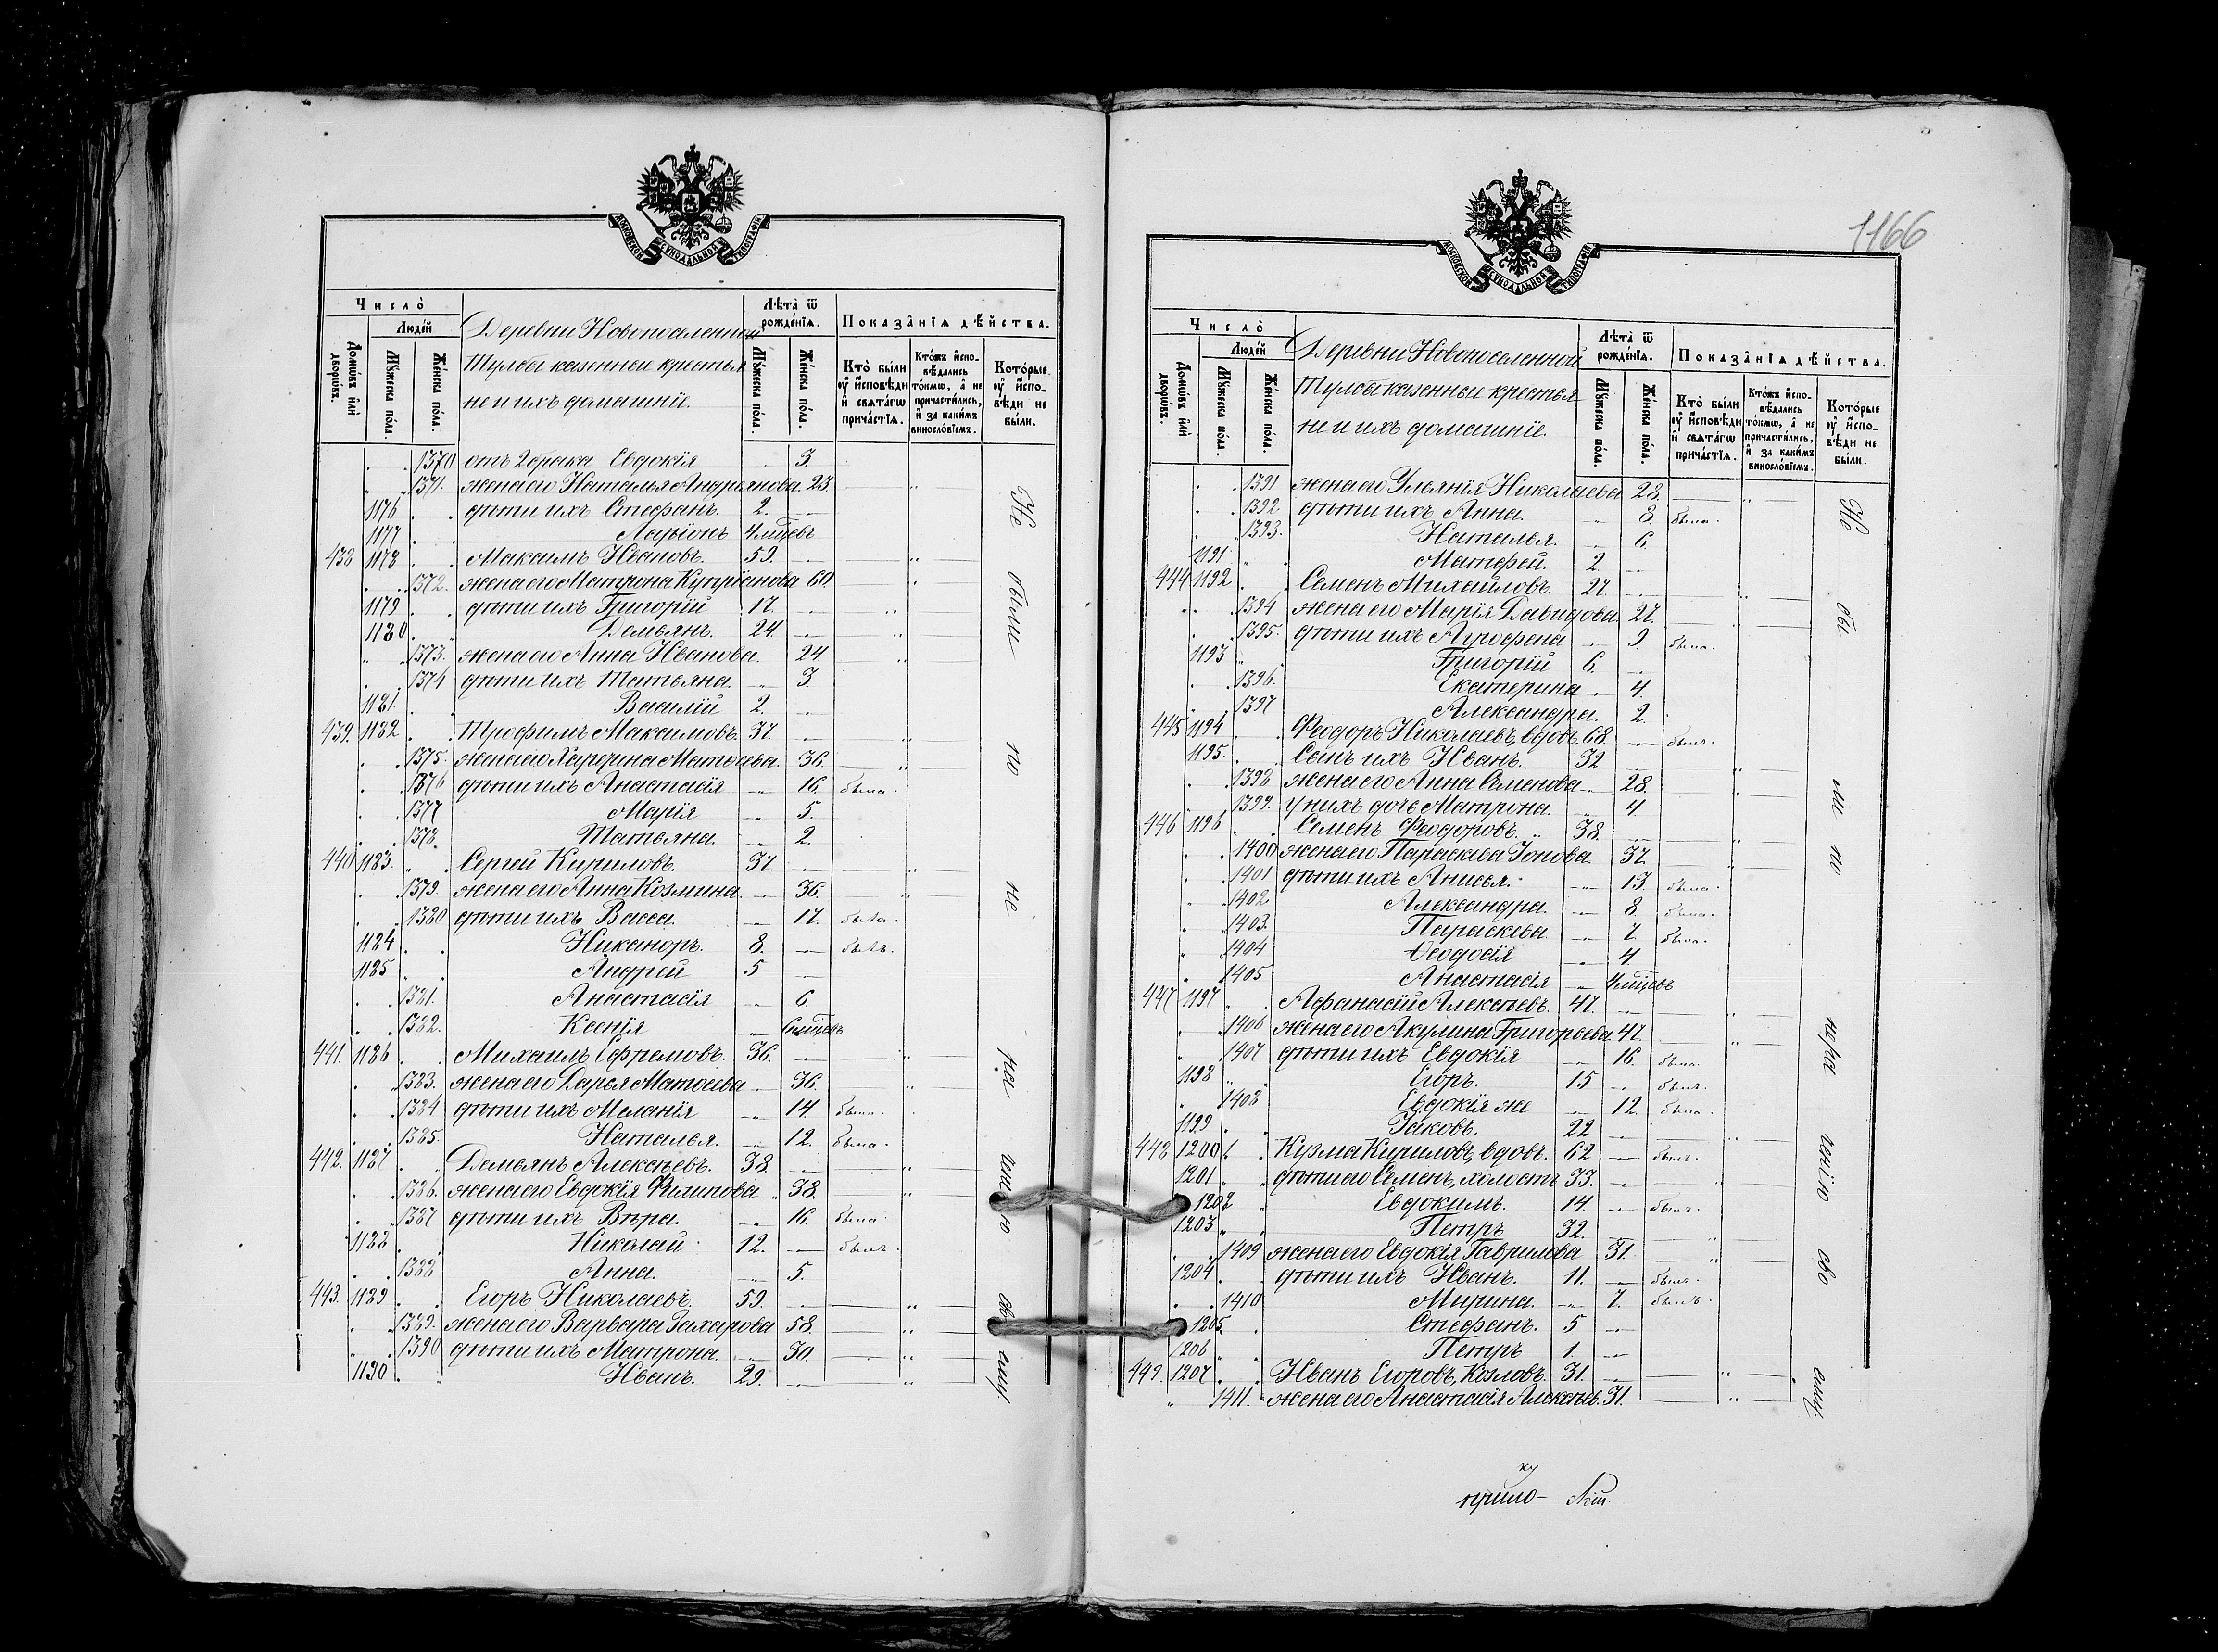 МОСКОВСКОЙ СѴНОДАЛЬНОЙ ТИПОГРАФІИ
Число̀
Людéй
Домѡ́въ и҆лѝ дворѡ́въ.
Мꙋ́жеска по́ла.
Же́нска по́ла.
Деревни Новопоселенной
Тулобы казенные крестья
не и ихъ домашніе.
Лѣта̀ ѿ рожде́нїѧ.
Мꙋ́жеска по́ла.
Же́нска по́ла.
Показа̑нїѧ дѣ́йства.
Кто̀ бы́ли оу҆ и҆́сповѣди и҆ свѧта́гѡ прича́стїѧ.
Кто́жъ и҆спо­вѣ́дались то́кмѡ, а҆ не причасти́лись, и҆ за каки́мъ винослові́емъ.
Кото́рые оу҆ и҆́спо­вѣди не бы́ли.
1370 отъ 2 брака Евдокія 3.
1371. жена его Наталья Андреянова. 23.
1176 дѣти ихъ Стефанъ. 2.
1177 Ларіонъ 4 мѣсцевъ
438 1178 Максимъ Ивановъ. 59.
1372. жена его Матрона Купріянова 60
1179 дѣти ихъ Григорій 17.
1180 Демьянъ. 24.
1373. жена его Анна Иванова. 24.
1374 дѣти ихъ Татьяна. 3.
1181. Василій 2.
439. 1182 Трофимъ Максимовъ. 37.
1375. жена его Харитина Матѳеева. 36.
1376 дѣти ихъ Анастасія 16. была.
1377 Марія 5.
1378. Татьяна. 2.
440 1183. Сергей Кириловъ. 37.
1379. жена его Анна Козмина. 36.
1380 дѣти ихъ Васса. 17. была.
1184 Никаноръ. 8. былъ.
1185 Андрей 5
1381. Анастасія 6.
1382. Ксенія 6 мѣсцевъ
441. 1186 Михаилъ Ефремовъ. 36.
1383. жена его Дарья Матѳеева 36.
1384 дѣти ихъ Меланія 14. была.
1385. Наталья. 12. была.
442. 1187 Демьянъ Алексѣевъ. 38.
1386. жена его Евдокія Филипова 38.
1387 дѣти ихъ Вѣра. 16. была.
1188 Николай 12. былъ.
1388 Анна. 5.
443. 1189 Егоръ Николаевъ. 59.
1389. жена его Варвара Захарова 58.
1390 дѣти ихъ Матрона. 30.
1190 Иванъ. 29.
Не были по не ра чит
1166
МОСКОВСКОЙ СѴНОДАЛЬНОЙ ТИПОГРАФІИ
Число̀
Людéй
Домѡ́въ и҆лѝ дворѡ́въ.
Мꙋ́жеска по́ла.
Же́нска по́ла.
Деревни Новопоселенной
Тулобы казенные крестья
не и ихъ домашніе.
Лѣта̀ ѿ рожде́нїѧ.
Мꙋ́жеска по́ла.
Же́нска по́ла.
Показа̑нїѧ дѣ́йства.
Кто̀ бы́ли оу҆ и҆́сповѣди и҆ свѧта́гѡ прича́стїѧ.
Кто́жъ и҆спо­вѣ́дались то́кмѡ, а҆ не причасти́лись, и҆ за каки́мъ винослові́емъ.
Кото́рые оу҆ и҆́спо­вѣди не бы́ли.
1391 жена его Ульянія Николаева 28.
1392 дѣти ихъ Анна. 8. была.
1393. Наталья. 6.
1191. Матфей. 2.
444 1192 Семенъ Михайловъ. 27.
1394 жена его Марія Давидова. 27.
1395. дѣти ихъ Агрофена 9. была.
1193 Григорій 6.
1396. Екатерина 4.
1397 Александра. 2.
445 1194 Феодоръ Николаевъ, вдовъ. 68. былъ.
1195. Сынъ ихъ Иванъ. 32
1398 жена его Анна Семенова 28.
1399. у нихъ дочь Матрона. 4.
446 1196 Семенъ Феодоровъ. 38.
1400 жена его Параскева Іонова. 37.
1401 дѣти ихъ Анисья. 13. была.
1402 Александра. 8. была.
1403. Параскева 7. была.
1404 Ѳеодосія 4.
1405 Анастасія 4 мѣсцевъ
447 1197 Афанасій Алексѣевъ. 47.
1406 жена его Акулина Григорьева 47.
1407 дѣти ихъ Евдокія 16. была.
1198 Егоръ. 15 былъ.
1408 Евдокія же 12. была.
1199 Іаковъ. 22
448 1200 Кузма Кириловъ, вдовъ. 62 былъ.
1201 дѣти его Семенъ, холостъ 33.
1202 Евдокимъ. 14. былъ.
1203 Петръ 32.
1409 жена его Евдокія Гаврилова 31.
1204 дѣти ихъ Иванъ. 11. былъ.
1410 Мирина. 7. былъ.
1205. Стефанъ. 5
1206 Петръ 1.
449. 1207 Иванъ Егоровъ, Козловъ. 31.
1411. жена его Анастасія Алексѣев. 31.
Не бы ли по нера ченію сво ему.